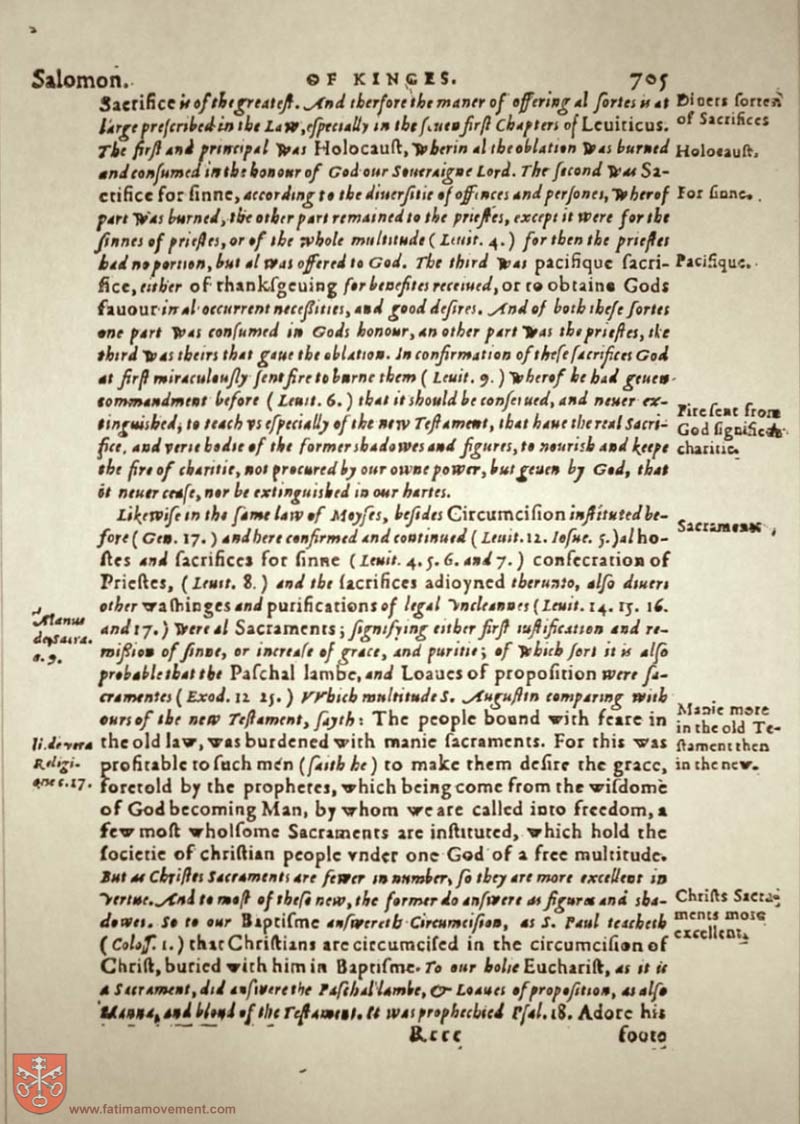 Salomon. OF KINGES. 705
Sacrifice is of the greatest. And therfore the maner of offering al sortes is at
large prescribed in the Law, especially in the seuen first Chapters of Leuiticus.
The first and principal was Holocaust, wherin al the oblation was burned
and consumed in the honour of God our Soueraigne Lord. The second was Sa-
crifice for sinne, according to the diuersitie of offinces and persones, wherof
part was burned, the other part remained to the priestes, except it were for the
sinnes of priestes, or of the whole multitude (Leuit. 4.) for then the priestes
had no portion, but al was offered to God. The third was pacifique sacri-
fice, either of thanksgeuing for benefites receiued, or to obtaine Gods
fauour in al occurrent necessities, and good desires. And of both these sortes
one part was consumed in Gods honour, an other part was the priestes, the
third was theirs that gaue the oblation. In confirmation of these sacrifices God
at first miraculously sent fire to burne them (Leuit. 9.) wherof he had geuen
commandment before (Leuit. 6.) that it should be conserued, and neuer ex-
tinguished; to teach vs especially of the new Testament, that haue the real Sacri-
fice, and verie bodie of the former shadowes and figures, to nourish and keepe
the fire of charitie, not procured by our owne power, but geuen by God, that
it neuer cease, nor be extinguished in our hartes.
Likewise in the same law of Moyses, besides Circumcision instituted be-
fore (Gen. 17.) and here confirmed and continued (Leuit. 12. Iosue. 5.) al ho-
stes and sacrifices for sinne (Leuit. 4. 5. 6. and 7.) consecration of
Priestes, (Leuit. 8.) and the sacrifices adioyned therunto, also diuers
other washinges and purifications of legal vncleannes (Leuit. 14. 15. 16.
and 17.) were al Sacraments; signifying either first iustification and re-
mission of sinne, or increase of grace, and puritie; of which sort it is also
probable that the Paschal lambe, and Loaues of proposition were sa-
cramentes (Exod. 12 25.) VVhich multitude S. Augustin comparing with
ours of the new Testament, sayth: The people bound with feare in
the old law, was burdened with manie sacraments. For this was
profitable to such men (saith he) to make them desire the grace,
foretold by the prophetes, which being come from the wisdome
of God becoming Man, by whom we are called into freedom, a
few most wholsome Sacraments are instituted, which hold the
societie of christian people vnder one God of a free multitude.
But as Christes Sacraments are fewer in number, so they are more excellent in
vertue. And to most of these new, the former do answere as figures and sha-
dowes. So to our Baptisme answereth Circumcision, as S. Paul teacheth
(Coloss. 1.) that Christians are circumcised in the circumcision of
Christ, buried with him in Baptisme. To our holie Eucharist, as it is
a Sacrament, did answere the Paschal lambe, & Loaues of proposition, as also
Manna, and bloud of the Testament. It was prophechied Psal. 18. Adore his
Rrrr foote
Diuers sortes
of Sacrifices
Holocaust.
For sinne.
Pacifique.
Fire sent from
God signifieth
charitie.
Sacraments
Manie more
in the old Te-
stament then
in the new.
Christs Sacra-
ments more
excellent.
li. de vera
Religi-
one c. 17.
www.fatimamovement.com